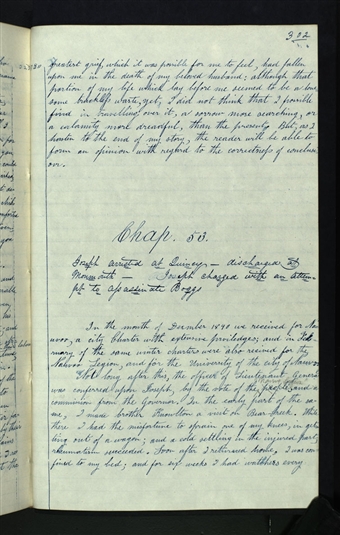 302
greatest grief, which it was possible for me to feel, had fallen
upon me in the death of my beloved husband: although that
portion of my life which lay before me seemed to be a lone-
some trackless waste, yet, I did not think that I possible
find in travelling over it, a sorrow more searching, or
a calamity more dreadful, than the present. But, as I
hasten to the end of my story, the reader will be able to
form an opinion with regard to the correctness of conclusi-
on.
Chap. 53.
Joseph arrested at Quincy — discharged at
Monmouth — Joseph charged with an attem-
pt to assassinate Boggs
In the month of December 1840 we received for Na-
uvoo, a city Charter with extensive priviledges; and in Feb-
ruary of the same winter charters were also received for the
Nauvoo Legion, and for the University of the city of Nauvoo
Not long after this, the office of Lieutenant General
was conferred upon Joseph, by the vote of the people, and a
commission from the Governor. In the early part of the sa-
me, I made brother Knowlton a visit on Bear creek. While
there I had the misfortune to sprain one of my knees, in get-
ting out of a wagon; and a cold settling in the injured part,
rheumatism succeeded. Soon after I returned home, I was con-
fined to my bed, and for six weeks I had watchers every